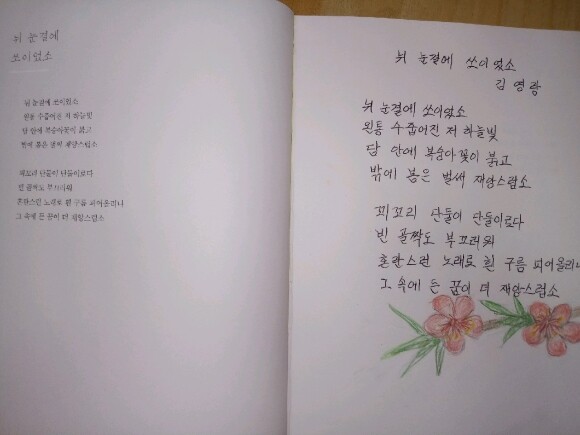 뉘 눈결에
쏘이었소
뉘 눈결에 쏘이었소
왼통 수줍어진 저 하늘빛
담 안에 복숭아꽃이 붉고
밖에 봄은 벌써 재앙스럽소
꾀꼬리 단둘이 단둘이로다
빈 골짝도 부끄러워
혼란스런 노래로 흰 구름 피어올리나
그 속에 든 꿈이 더 재앙스럽소
뉘 눈결에 쏘이었소
김영랑
뉘 눈결에 쏘이었소
왼통 수줍어진 저 하늘빛
담 안에 복숭아꽃이 붉고
밖에 봄은 벌써 재앙스럽소
꾀꼬리 단둘이 단둘이로다
빈 골짝도 부끄러워
혼란스런 노래로 흰 구름 피어올리나
그 속에 든 꿈이 더 재앙스럽소